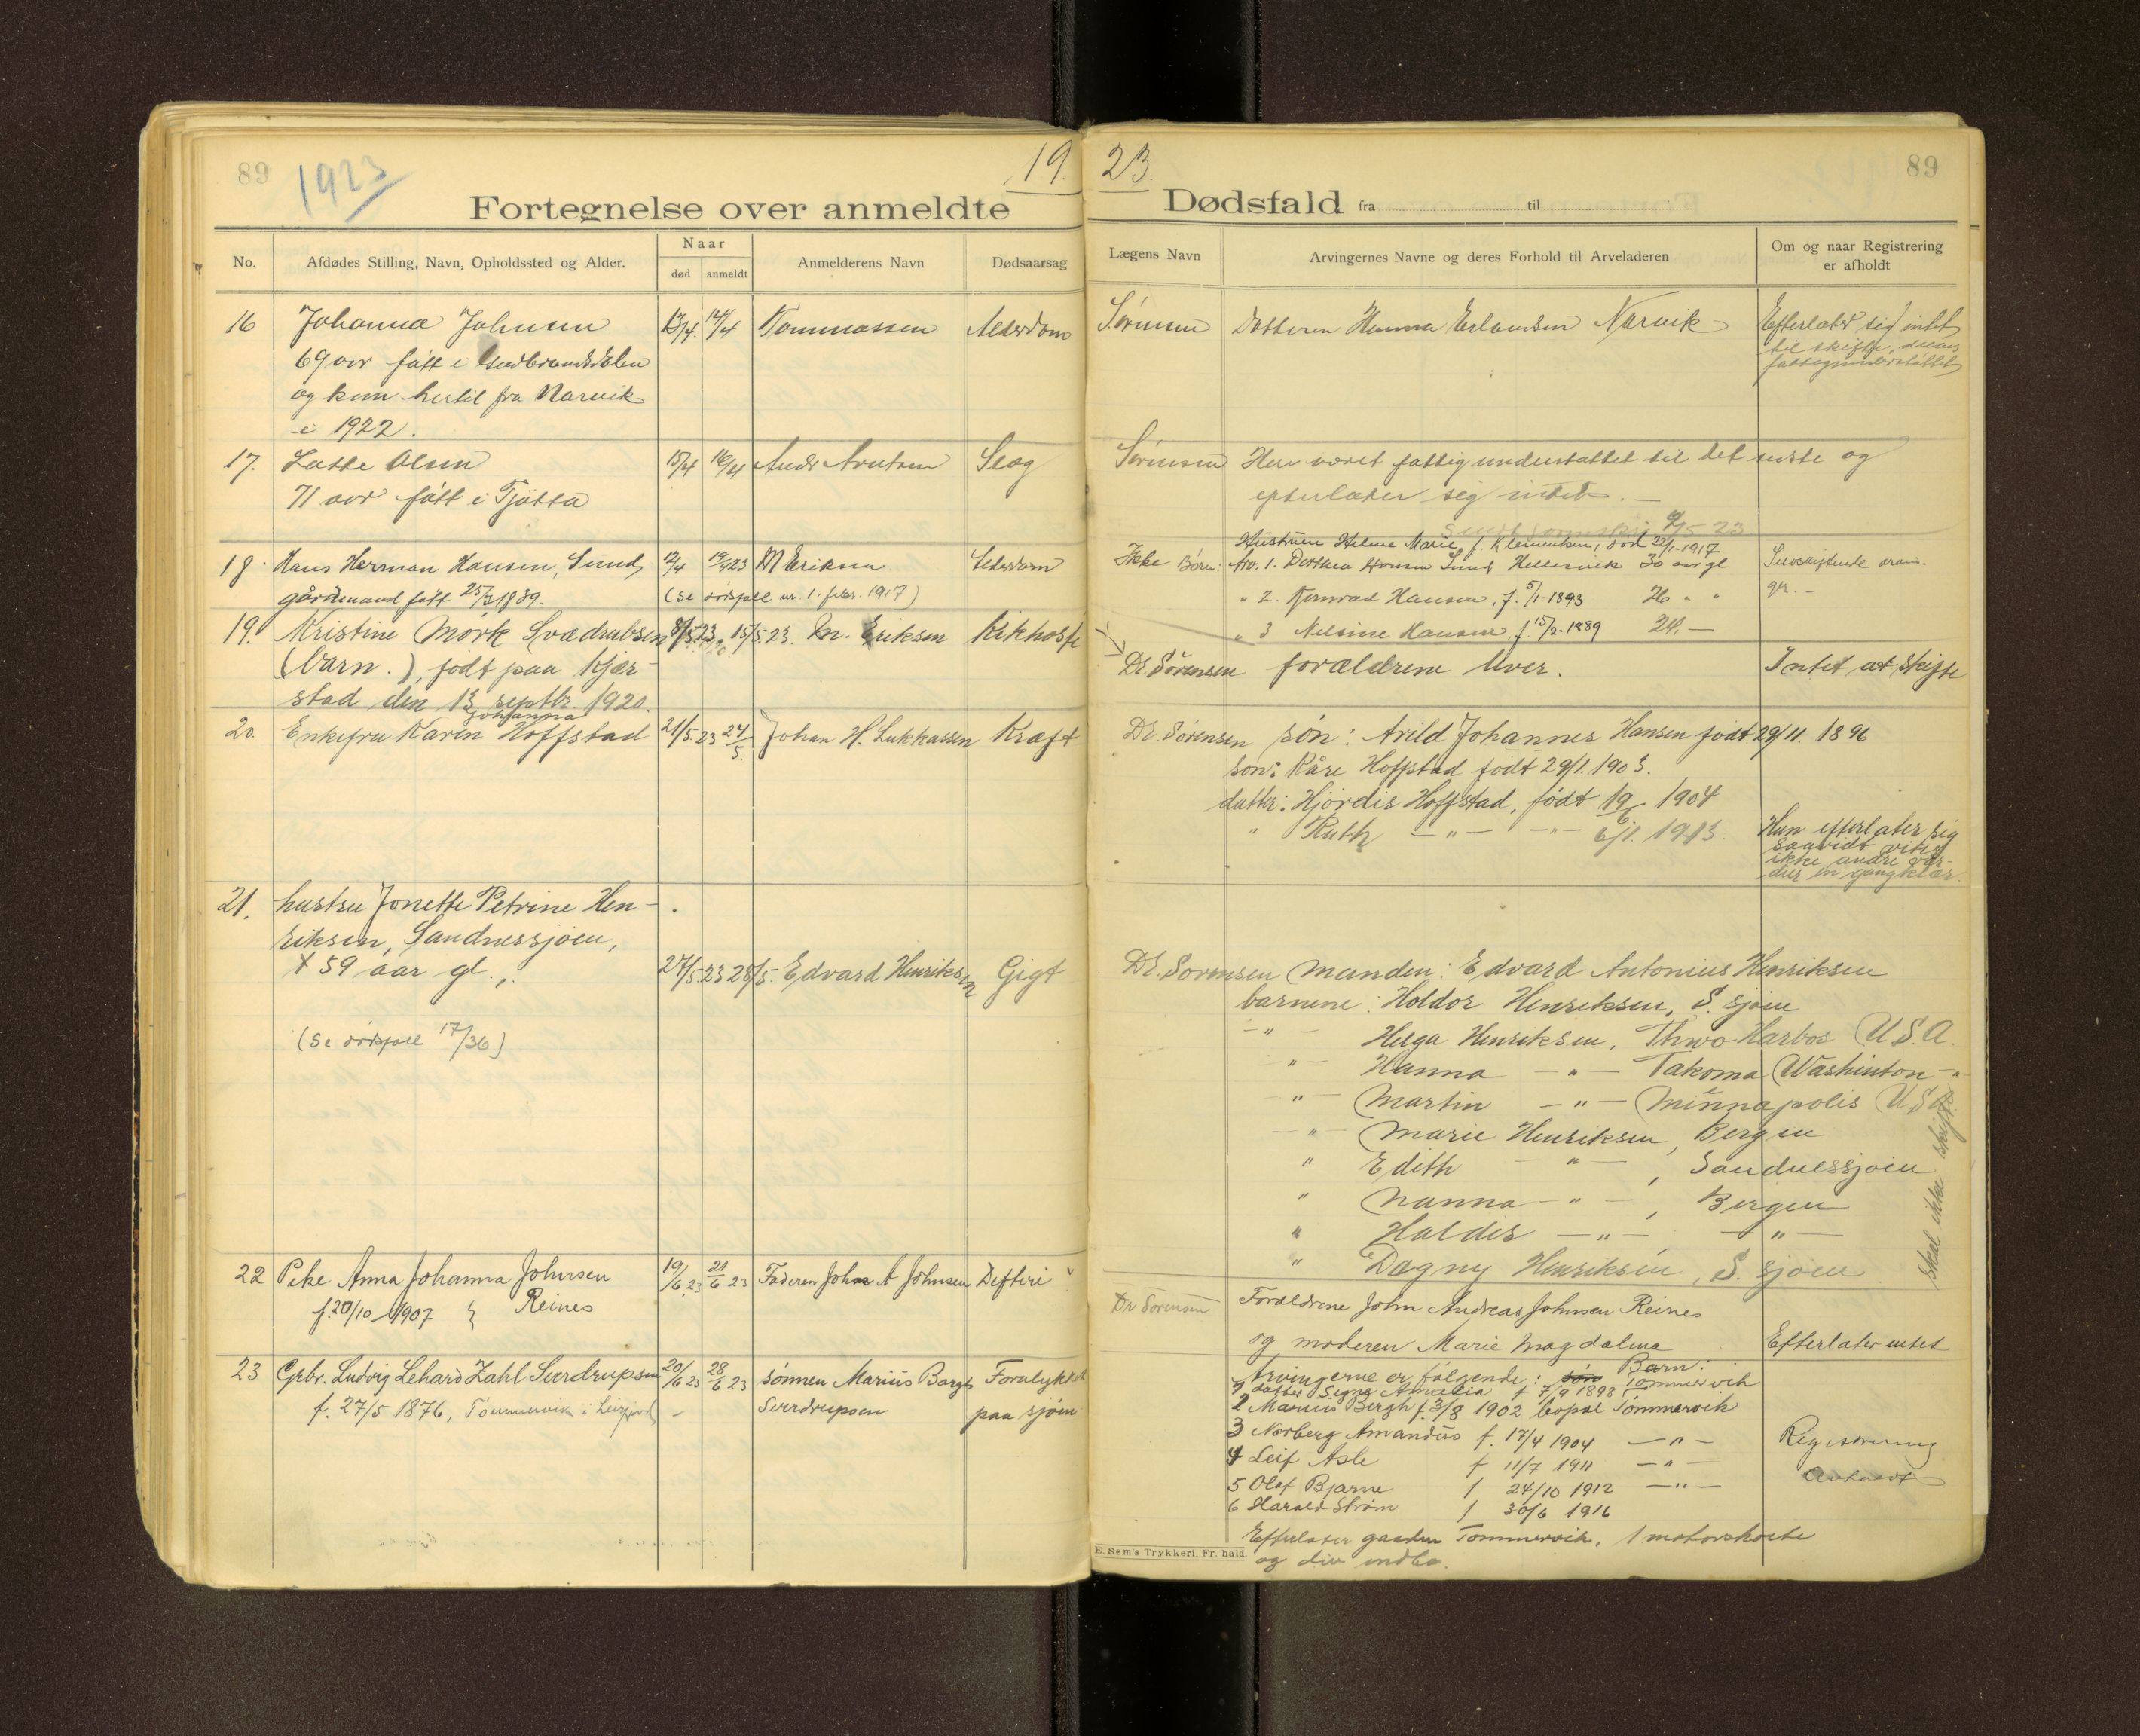 89
1923
19.
Fortegnelse over anmeldte
No.
Afdødes Stilling, Navn, Opholdssted og Alder.
Naar
død
anmeldt
Anmelderens Navn
Dødsaarsag
16
Johanna Johnsen
13/4. 14/4
Tommassen
Alderdom
69 aar fått i Gudbrandsdalen
og kom hertil fra Narvik
i 1922.
17.
Lasse Olsen
15/4 16/4
Slag
71 aar fått i Tjötta
18
Hans Herman Hansen, Sund,
12/4 19/4 23
M Eriksen
Alderdom
gårdmand fått 25/3 1839.
(Se dødsfall nr. 1. febr. 1917)
19.
Kristine Mørk Svedrubsen
8/5 23. 15/5 23.
M. Eriksen
Kikhoste
(barn.), født paa Kjær-
stad den 13 septbr. 1920.
20.
Johanna
Enkefru Karen Hoffstad
21/5 23 24/5.
Johan H. Lukkassen
Kræft
21.
hustru Jonette Petrine Hen-
riksen, Sandnessjøen,
59 aar gl.,
27/5 23 28/5.
Edvard Henriksen
Gigt
(Se dødsfall 17/36)
22
Pike Anna Johanna Johnsen
19/6 23 21/6 23
Faderen John A Johnsen
Difteri
f. 20/10 1907 } Reines
23
Gbr. Ludvig Lehard Zahl Sverdrupsen
20/6 23 28/6 23
sönnen Marius Bergh
Forulykket
f. 27/5 1876, Tommervik i Leirfjord
Sverdrupsen
paa sjöen
23.
89
Dødsfald fra til
Lægens Navn
Arvingernes Navne og deres Forhold til Arveladeren
Om og naar Registrering
er afholdt
Sörensen
Datteren Hanna Erlandsen Narvik
Efterlater sig intet
til skifte,
fattigunderstöttet
Sörensen
Har været fattigunderstöttet til det sidste og
efterlater sig intet. —
Hustruen Helene Marie f. Klementsen, död 22/1-1917
Ikke
Børn: No. 1. Dorthea Hansen Sund Hellesvik 30 aar gl
" 2. Konrad Hansen, f. 5/1-1893 26 " "
" 3 Nilsine Hansen, f. 15/2-1889 24. —
Dr. Sörensen
forældrene lever.
Intet at skifte
Dr. Sörensen
søn: Arild Johannes Hansen født 29/11. 1896
søn: Kåre Hoffstad født 29/1. 1903.
datter: Hjördis Hoffstad, født 19/6 1904
" Ruth — " — — " — 6/1. 1913.
Hun efterlater sig
saavidt vites
ikke andre vær-
dier en gangklær.
Dr. Sorensen
Manden: Edvard Antonius Henriksen
barnene: Holdor Henriksen, S. sjøen
— " — Helga Henriksen, Thwo Harbos U.S.A.
" — Hanna — " — Takoma Washinton — "
" — Martin — " — Minnapolis U.S.A.
— " — Marie Henriksen, Bergen
" Edith — " —, Sandnessjøen
" Nanna — " —, Bergen
" Haldis — " — — " —
" Dagny Henriksen, S. sjøen
Skal ikke skiftes
Dr Sörensen
Foraldrene John Andreas Johnsen Reines
og moderen Marie Magdalena
Efterlater intet
Arvingerne er følgende: søn Barn:
1 datter Signe Amalia f 7/9 1898 Tommervik
2 Marius Bergh f. 3/8 1902 bopæl Tommervik
3 Norberg Amandus f. 17/4 1904 — " —
4 Leif Asle f 11/7 1911 — " —
5 Olaf Bjarne f 24/10 1912 — " —
6 Harald Strøm f 30/6 1916
Registrering
Efterlater gaarden Tommervik, 1 motorskøite
og div indbo.
E. Sem's Trykkeri, Fr.hald.